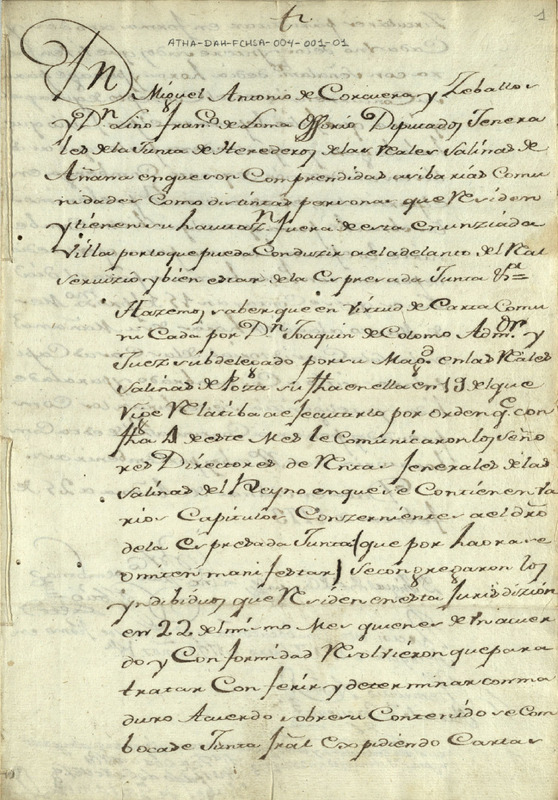 1
ATHA-DAH-FCHSA-004-001-01
Dn Miguel Antonio de Corcuera y Zeballos
y Dn Lino Franco de Loma Ossorio Diputados Jenera
les de la Junta de Herederos de las Reales Salinas de
Añana en que son Comprendidas varias Comu
nidades Como distintas personas que Residen
y tienen su havitazn fuera de esta enunziada
Villa por lo que pueda Conduzir a el adelanto del Real
seruizio y bien estar de la espresada Junta &a
Hazemos saber que en virtud de Carta Comu
nicada por Dn Joaquin de Colomo Admor y
Juez subdelegado por su Magd en las Reales
Salinas de Poza su fha en ella en 19 del que
Rige Relatiba a efecuarlo por orden qe con
fha 1 de este Mes le Comunicaron los seño
res Directores de Rentas Jenerales de las
Salinas del Reyno en que se Contienen va
rios Capitulos Conzernientes a el dro
de la Espresada Junta (que por haora se
omiten manifestar) se congregaron los
yndibiduos que Residen en esta Jurisdizion
en 22 del mismo Mes quienes de un acuer
do y Conformidad Resolvieron que para
tratar Conferir y determinar con ma
duro Acuerdo sobre su Contenido se Com
bocade Junta Jral Expidiendo Cartas